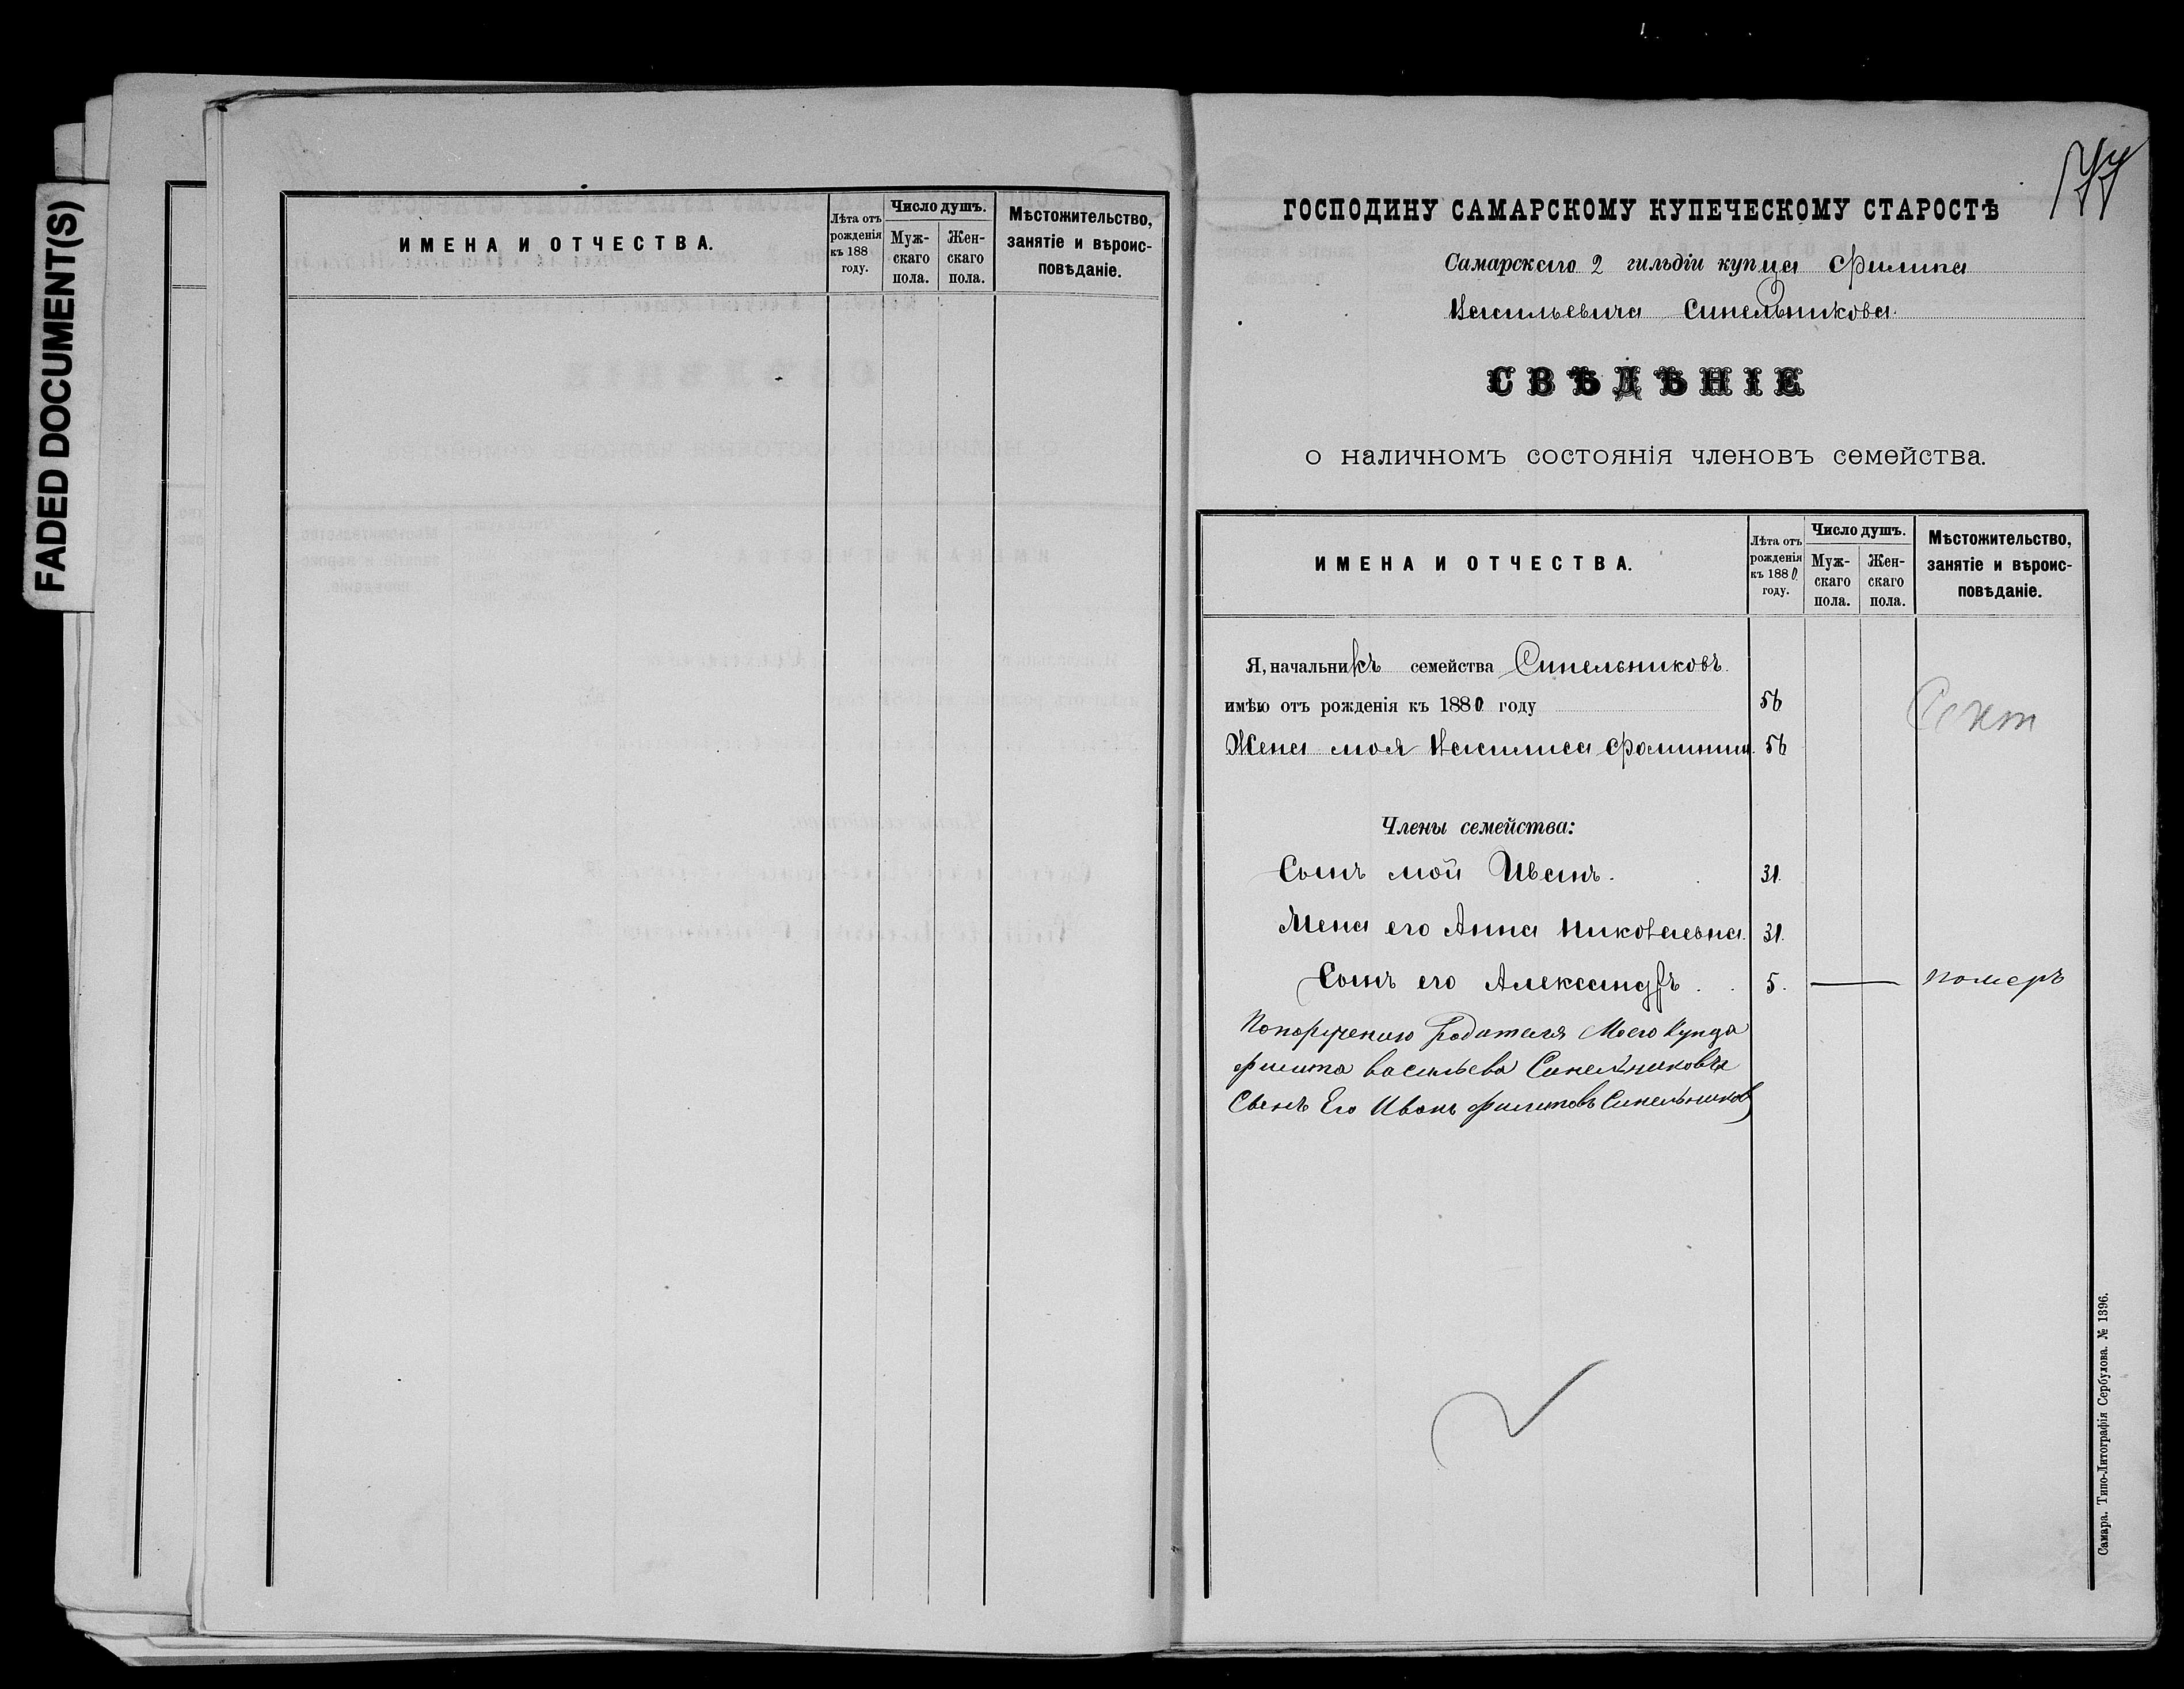 FADED DOCUMENT(S)
ИМЕНА И ОТЧЕСТВА.
Лѣта отъ
рожденія
къ 188
году.
Число душъ.
Муж-
скаго
пола.
Жен-
скаго
пола.
Мѣстожительство,
занятіе и вѣроис-
повѣданіе.
177
ГОСПОДИНУ САМАРСКОМУ КУПЕЧЕСКОМУ СТАРОСТѢ
Самарскаго 2 гильдіи купца Филипа
Васильевича Синельникова.
СВѢДѢНІЕ
о наличномъ состоянія членовъ семейства.
ИМЕНА И ОТЧЕСТВА.
Лѣта отъ
рожденія
къ 1880
году.
Число душъ.
Муж-
скаго
пола.
Жен-
скаго
пола.
Мѣстожительство,
занятіе и вѣроис-
повѣданіе.
Я, начальникъ семейства Синельниковъ
имѣю отъ рожденія къ 1880 году 56
Жена моя Василиса Фоминиш. 56
Члены семейства:
Сынъ мой Иванъ. 31.
Жена его Анна Николаевна. 31.
Сынъ его Александръ . . 5. — померъ
Попорученію Родителя Моего Купца
Филипа Васильева Синельникова
Сынъ Его Иванъ Филиповъ Синельников
Самара. Типо-Литографія Сербулова. № 1396.